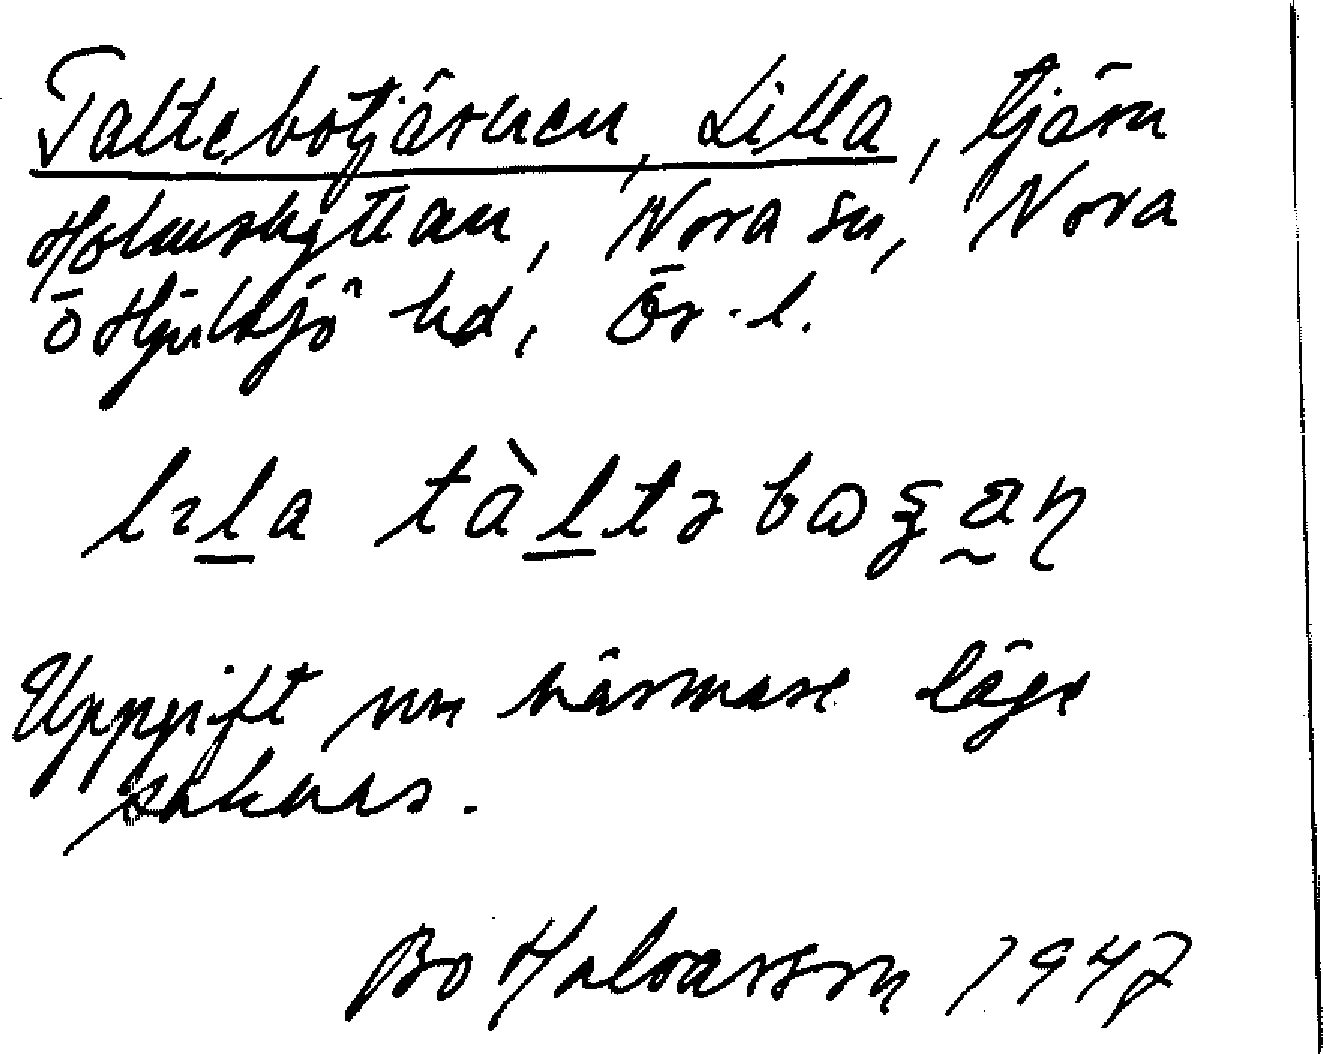 Taltebotjärnen, Lilla, tjärn
Holmshyttan, Nora sn, Nora
o Hjulsjö hd, Ör. l.
lɩla tàltəboʒæɳ
Uppgift om närmare läge
saknas.
Bo Halvarsson 1947